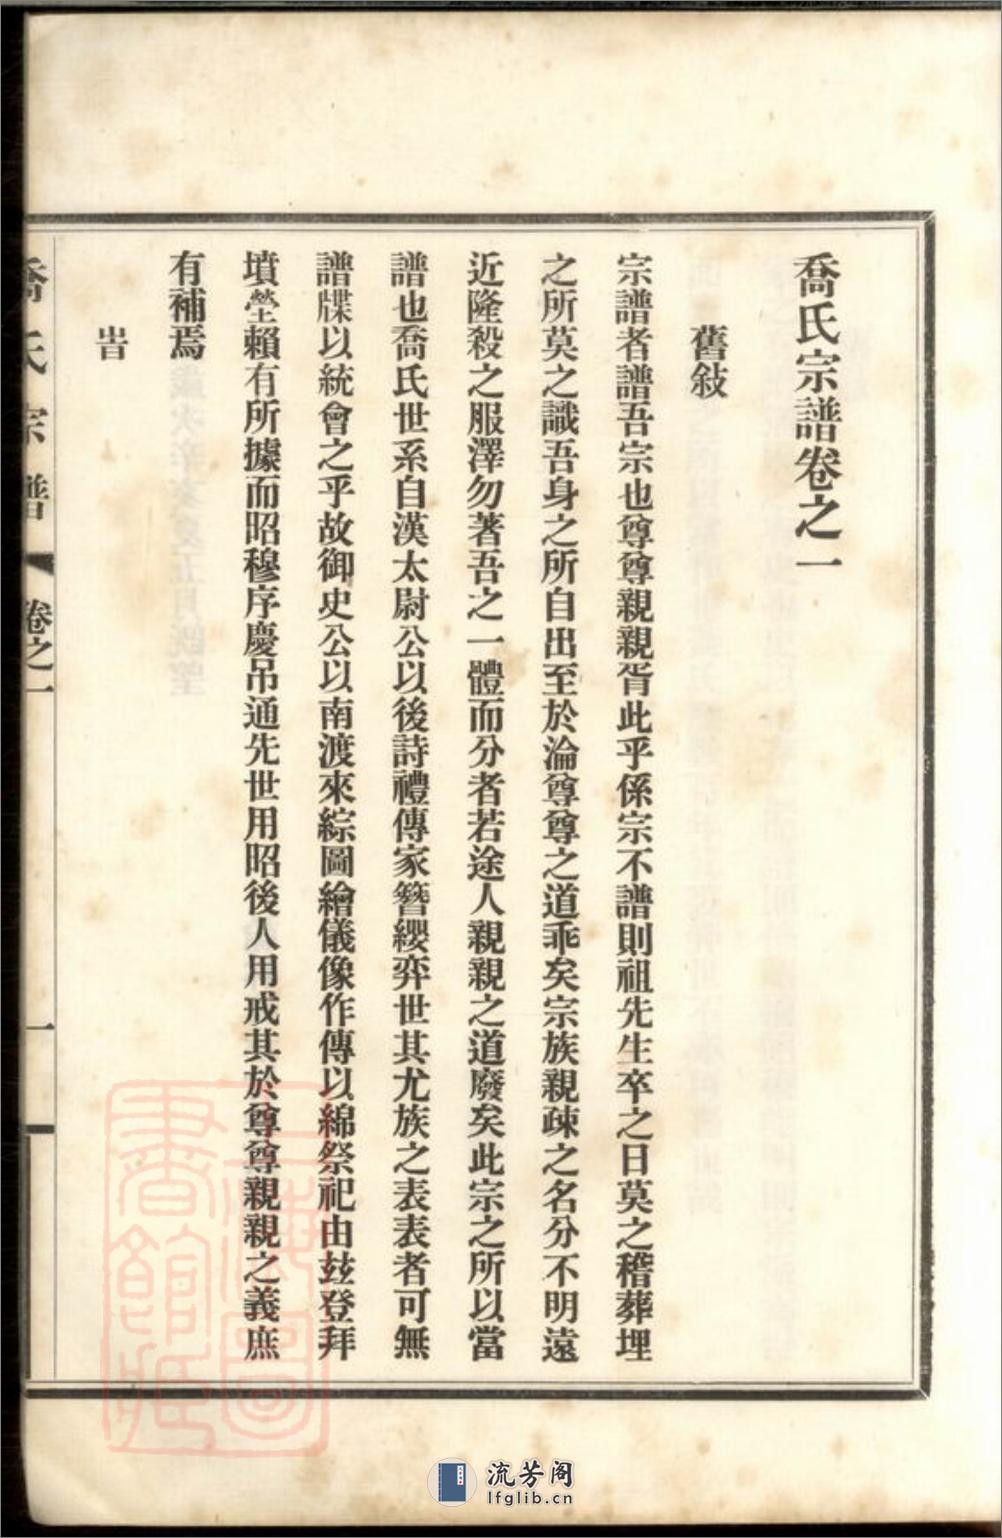 喬氏宗譜卷之一
舊敍
宗譜者譜吾宗也尊尊親親胥此乎係宗不譜則祖先生卒之日莫之稽葬埋
之所莫之識吾身之所自出至於淪尊尊之道乖矣宗族親疎之名分不明遠
近隆殺之服澤勿著吾之一體而分者若途人親親之道廢矣此宗之所以當
譜也喬氏世系自漢太尉公以後詩禮傳家簪纓弈世其尤族之表表者可無
譜牒以統會之乎故御史公以南渡來綜圖繪儀像作傳以綿祭祀由玆登拜
墳塋賴有所據而昭穆序慶吊通先世用昭後人用戒其於尊尊親親之義庶
有補焉
旹
喬氏宗譜
卷之一
一
上海圖書館藏
流芳阁
lfglib.cn